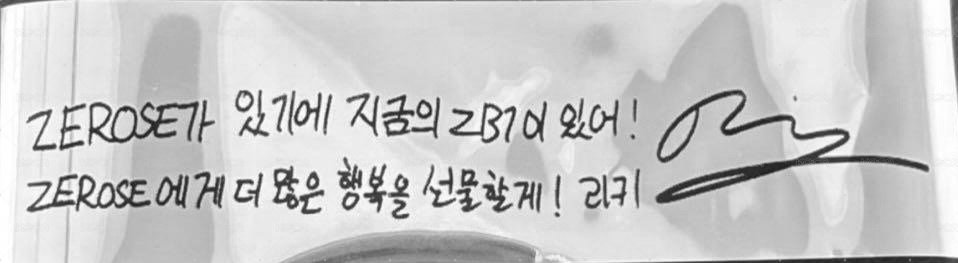 ZEROSE가 있기에 지금의 ZB1이 있어!
ZEROSE에게 더 많은 행복을 선물할게! 리키